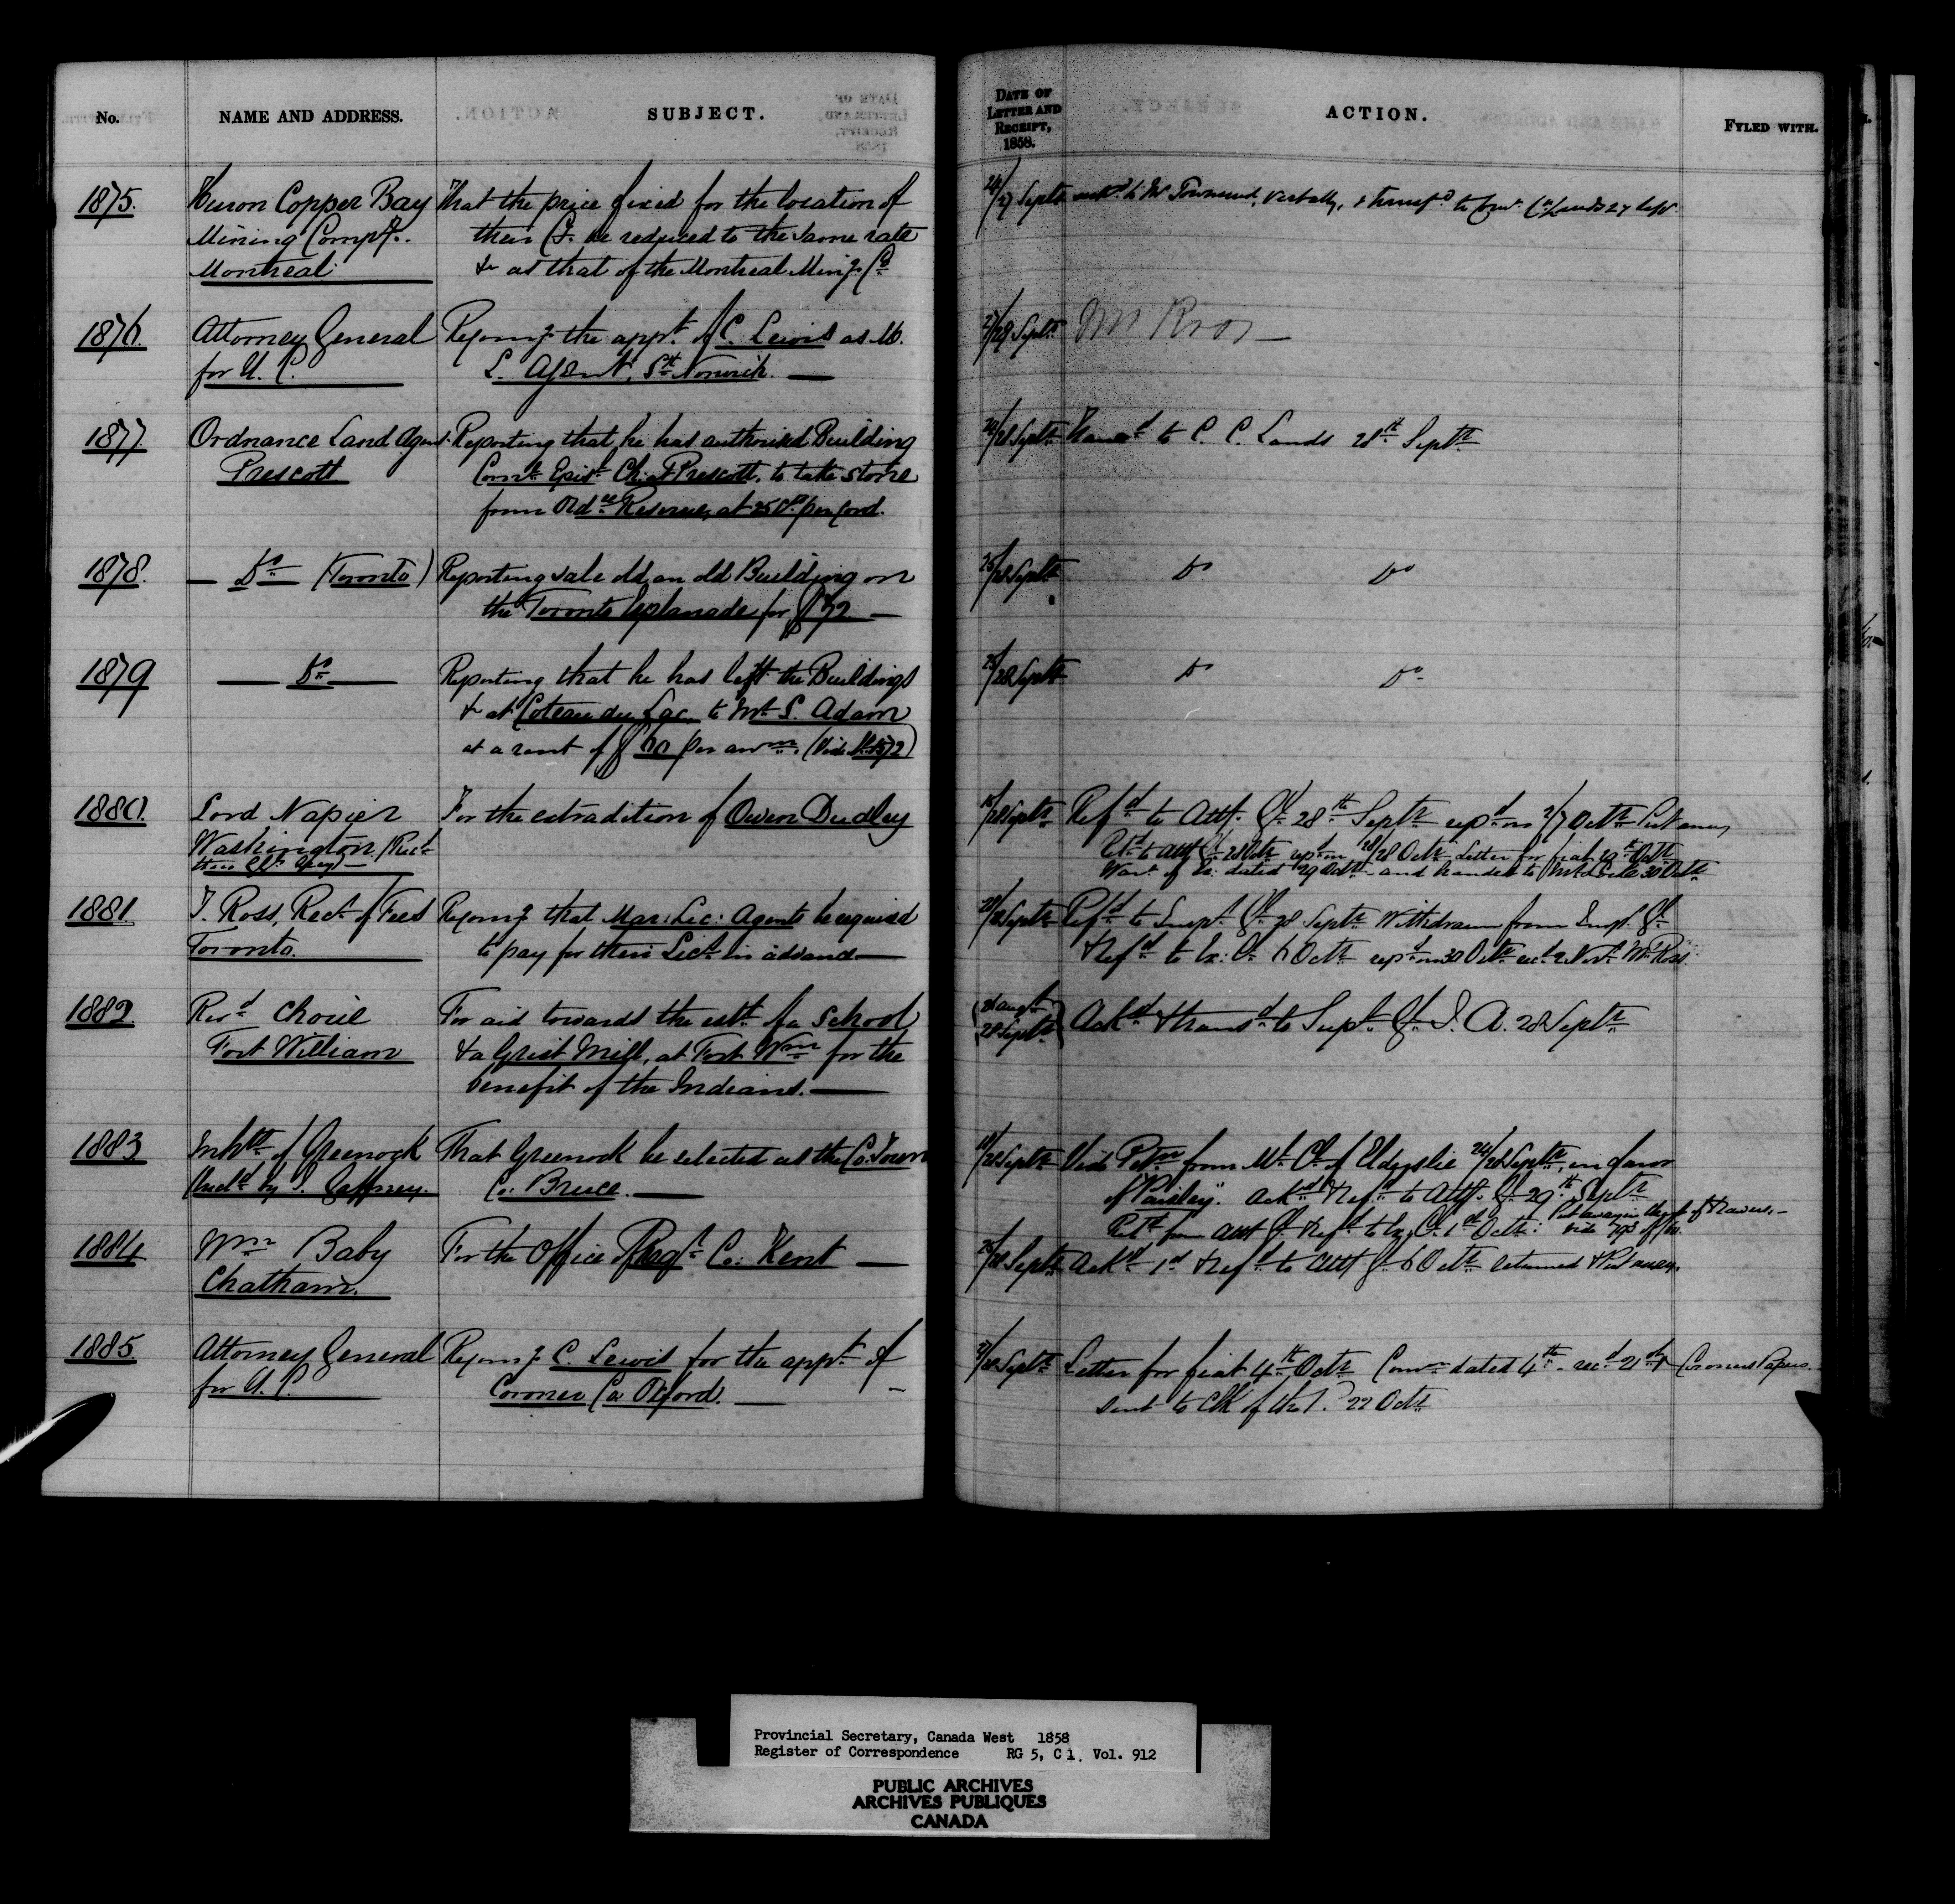 No.
NAME AND ADDRESS.
SUBJECT.
DATE OF
LETTER AND
RECEIPT,
1858.
ACTION.
FYLED WITH.
1875.
Huron Copper Bay
Mining Compy.
Montreal
That the price fixed for the location of
their Co. be reduced to the same rate
&c as that of the Montreal Ming Co
24/27 Septr
to Mr Townsend, verbally, & transfd to 27 Sepr
1876.
Attorney General
for U. C.
Recomg the appt of C. Lewis as M.
L. Agent, Sth Norwich.
27/28 Septr
Mr Ross
1877.
Ordnance Land Agent
Prescott
Reporting that he has authorised Building
Comte Epist Ch: at Prescott, to take stone
from Ordce Reserve, at 25 per cord.
28 Septr
Transd to C. C. Lands 28th Septr
1878.
Do (Toronto)
Reporting sale old an old Building on
the Toronto Esplanade for $72.
25/28 Septr
Do Do
1879
Do
Reporting that he has left the Buildings
& at Coteau du Lac, to Mr S. Adam
at a rent of $60 per annm. (Vide 1572)
25/28 Septr
Do Do
1880.
Lord Napier
Washington (Recd
thro
For the extradition of Owen Dudley
28 Septr
Refd to Atty. Gl 28th Septr repd on 2/7 Octr Put away
Refd to Atty Gl 28 Octr repd on 28/28 Octr Letter for fiat 29th Octr
Wart of Ex: dated 29 Octr and handed to 30 Octr
1881.
T. Ross, Rect of Fees
Toronto.
Recomg that Mar: Lic: Agents be required
to pay for their Lics in advance
28 Septr
Refd to Inspt Gl 28 Septr Withdrawn from Inspt Gl
& Refd to Ex: Cl 6 Octr repd on 30 Octr recd 2 Novr Mr Ross
1882
Revd Choné
Fort William
For aid towards the estt of a School
& a Grist Mill, at Fort Wm for the
benefit of the Indians.
28 Septr
Ackd & transd to Supt Gl I. A. 28 Septr
1883
Inhts of Greenock
That Greenock be selected as the Co: Town
Co: Bruce.
28 Septr
Vide Petn from Ml Cl of Elderslie 24/28 Septr, in favor
of "Paisley". Ackd & Refd to Atty. Gl 29th Septr
Retd from Atty Gl & Refd to Ex: Cl 1st Octr:
1884
Wm Baby
Chatham.
For the Office of Regr Co: Kent
28 Septr
Ackd 1st & Refd to Atty Gl 6 Octr returned & Put away.
1885
Attorney General
for U. C.
Recomg C. Lewis for the appt of
Coroner Co: Oxford.
27/28 Septr
Letter for fiat 4th Octr Comn dated 4th recd 21st
sent to Clk of the P. 22 Octr
Coroners Papers.
Provincial Secretary, Canada West 1858
Register of Correspondence RG 5, C 1, Vol. 912
PUBLIC ARCHIVES
ARCHIVES PUBLIQUES
CANADA